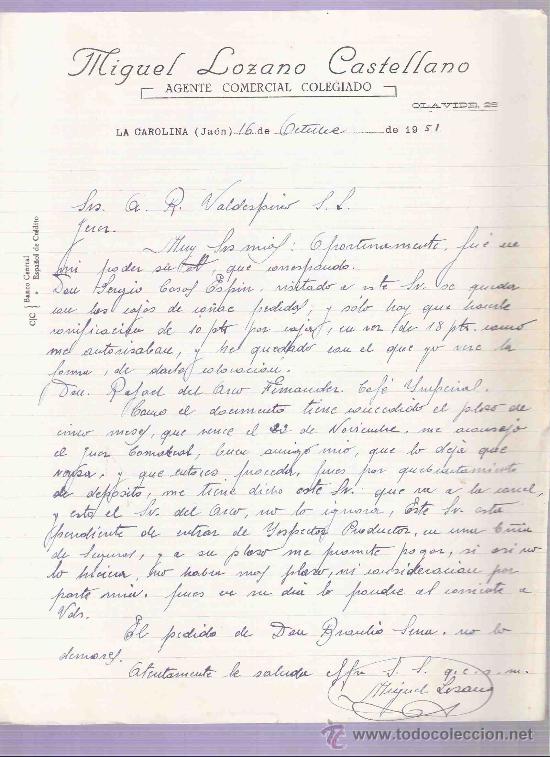 Miguel Lozano Castellano
AGENTE COMERCIAL COLEGIADO
OLAVIDE, 28
LA CAROLINA (Jaén) 16 de Octubre de 1951
C/C Banco Central
" Español de Crédito
Srs. A. R. Valdespino S. L.
Jerez.
Muy Srs mios: Oportunamente, fué en
mi poder su att, que correspondo.
Don Sergio Casas Espin. visitado a este Sr. se queda
con las cajas de coñac pedidas, y sólo hay que hacerle
bonificacion de 10 pts por cajas, en vez de 18 pts. como
me autorisaban, y he quedado con el que yo vere la
forma, de darle colocacion.
Don. Rafael del Arco Fernandez. Café Ymperial.
Como el documento tiene concedido el plaso de
cinco meses, que vence el 22 de Noviembre. me aconsejo
el Juez Comarcal, buen amigo mio, que lo deje que
venza. y que entonces proceda, pues por quebrantamiento
de deposito, me tiene dicho este Sr. que va a la carcel,
y esto el Sr. del Arco, no lo ignora, Este Sr. esta
pendiente de entrar de Yospector Productor, en una Cñia
de Seguros, y a su plaso me promete pagar, si asi no
lo hiciera, no habra mas plaso, ni consideracion por
parte mia. pues en su dia lo pondre al corriente a
Vds.
El pedido de Don Braulio Sena. no lo
demores.
Atentamente le saluda affmo S. S. q. e. s. m.
Miguel Lozano
todocoleccion.net